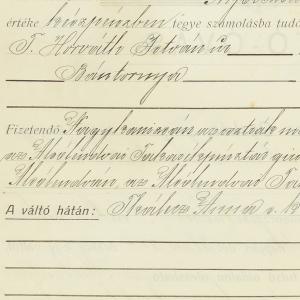 értéke készpénzben tegye számolásba
T. Horváth István úr
Bántornya
Fizetendő Nagykanizsán az osztrák m
az Alsólendvai Takarékpénztár
Alsólendván, az Alsólendvai Ta
A váltó hátán: Skálicz Anna s. k